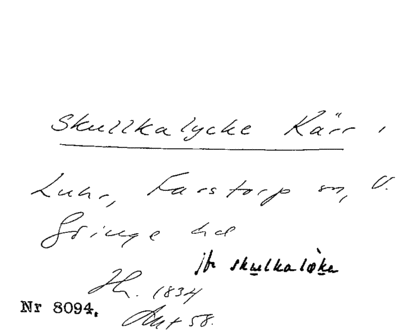 Skullkalycke Kärr,
Luhr, Farstorp sn, V.
Göinge hd
jfr skulkaløke
Hh. 1834
Nr 8094. Ant 58.